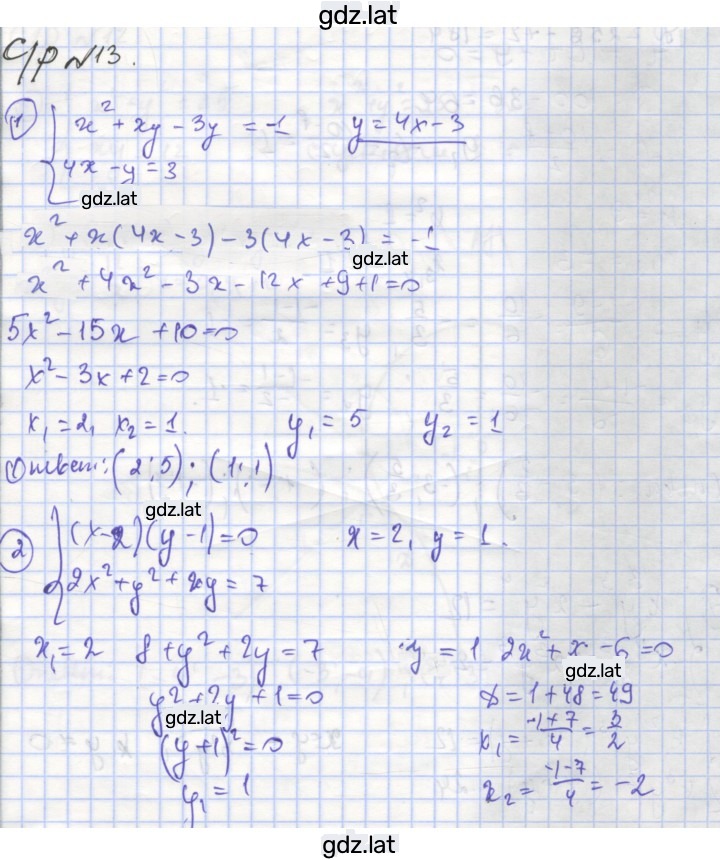 gdz.lat
С/р №13.
① { x² + xy - 3y = -1    y = 4x - 3
4x - y = 3
gdz.lat
x² + x(4x - 3) - 3(4x - 3) = -1
x² + 4x² - 3x - 12x + 9 + 1 = 0
5x² - 15x + 10 = 0
x² - 3x + 2 = 0
x₁ = 2, x₂ = 1.    y₁ = 5    y₂ = 1
Ответ: (2; 5); (1; 1)
gdz.lat
② { (x - 2)(y - 1) = 0    x = 2, y = 1.
2x² + y² + xy = 7
x₁ = 2    8 + y² + 2y = 7    y = 1    2x² + x - 6 = 0
gdz.lat
y² + 2y + 1 = 0    D = 1 + 48 = 49
gdz.lat
(y + 1)² = 0    x₁ = (-1 + 7)/4 = 3/2
y₁ = 1    x₂ = (-1 - 7)/4 = -2
gdz.lat